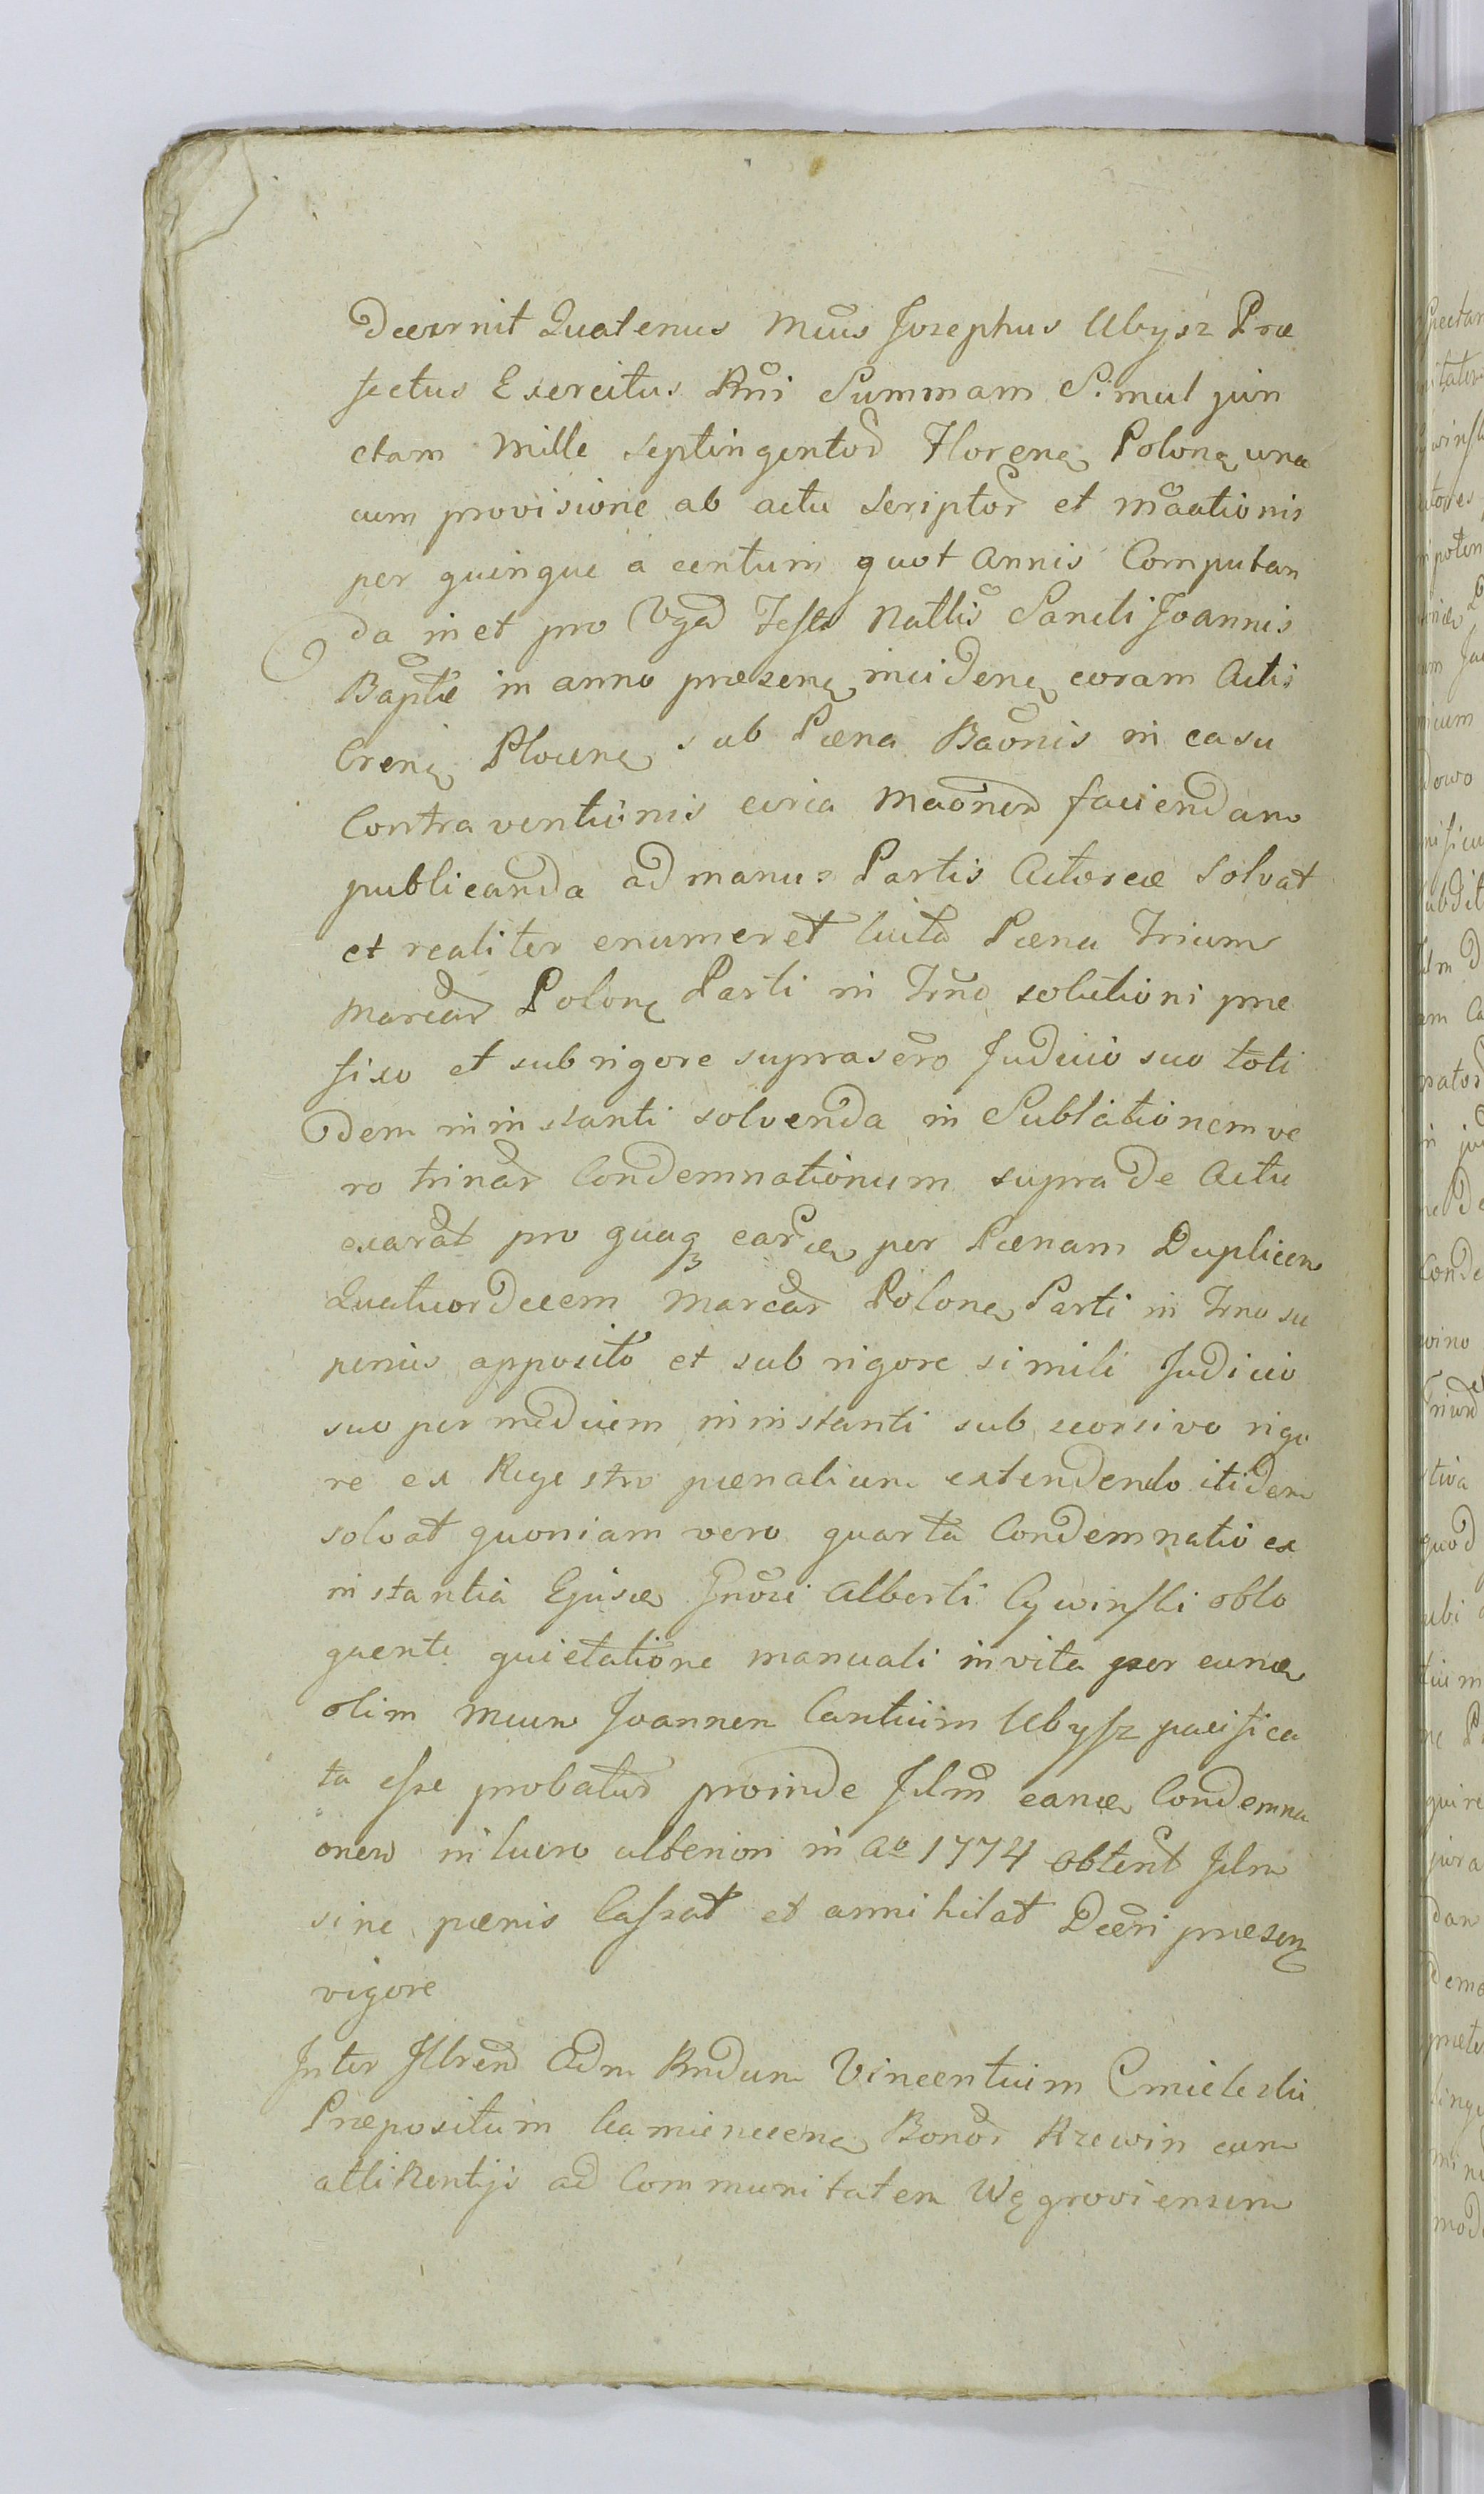 Decernit Quatenus Mcus Josephus Ubysz Præ
fectus Exercitus Rni Summam Simul jun
ctam Mille septingentor Florenꝫ Polonꝫ una
cum provisione ab actu scriptor et
per quinque a centum quot annis Computan
da in et pro Vga Festo Natlis Sancti Joannis
Baptæ in anno præsenꝫ incidenꝫ coram Actis
Crenꝫ Plocenꝫ sub Pæna Baonis in casu
Contraventionis circa faciendam
publicanda ad manus Partis Actoreæ solvat
et realiter enumeret luita Pæna Trium
Marcar Polonꝫ Parti in Trno solutioni præ
fixo et sub rigore suprasero Judicio suo toti
dem in instanti solvenda in Sublationem ve
ro trinar Condemnationum supra de Actu
exarat pro quaqꝫ earꝫ per Pænam Duplicem
Quatuordecem Marcar Polonꝫ Parti in Trno su
perius apposito et sub rigore simili Judicio
suo per medium in instanti sub seorsivo rigo
re ex Regestro pænalium extendendo itidem
solvat quoniam vero quarta Condemnatio ex
instantia Ejusꝫ Gnosi Alberti Cywinski oblo
quente quietatione manuali in vita per eunꝫ
olim Mcum Joannem Cantium Ubysz pacifica
ta esse probatur proinde Jdm eanꝫ Condemna
onem in lucro ulteriori in Ao 1774 obtent Jdm
sine pænis Cassat et annihilat Decri præsenꝫ
vigore
Inter Illrem Adm Rndum Vincentium Cmieleski
Præpositum Camienecenꝫ Bonor Krewin cum
attinentijs ad Communitatem Węgroviensem